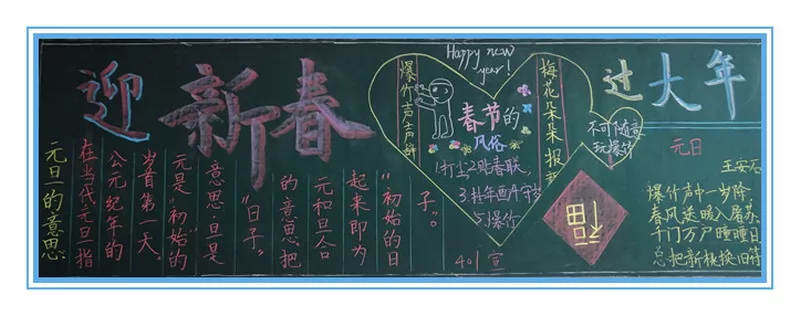 迎新春
元旦的意思:
在当代元旦指
公元纪年的
岁首第一天。
元是“初始的”
意思,旦是
“日子”
的意思,把
元和旦合
起来即为
“初始的日
子”。
Happy new
year!
爆竹声声辞
春节的
风俗
1.打尘 2贴春联,
3.挂年画 4守岁
5.爆竹
梅花朵朵报
401宣
不可随意
玩爆竹
福
过大年
元日
王安石
爆竹声中一岁除
春风送暖入屠苏
千门万户瞳瞳日
总把新桃换旧符